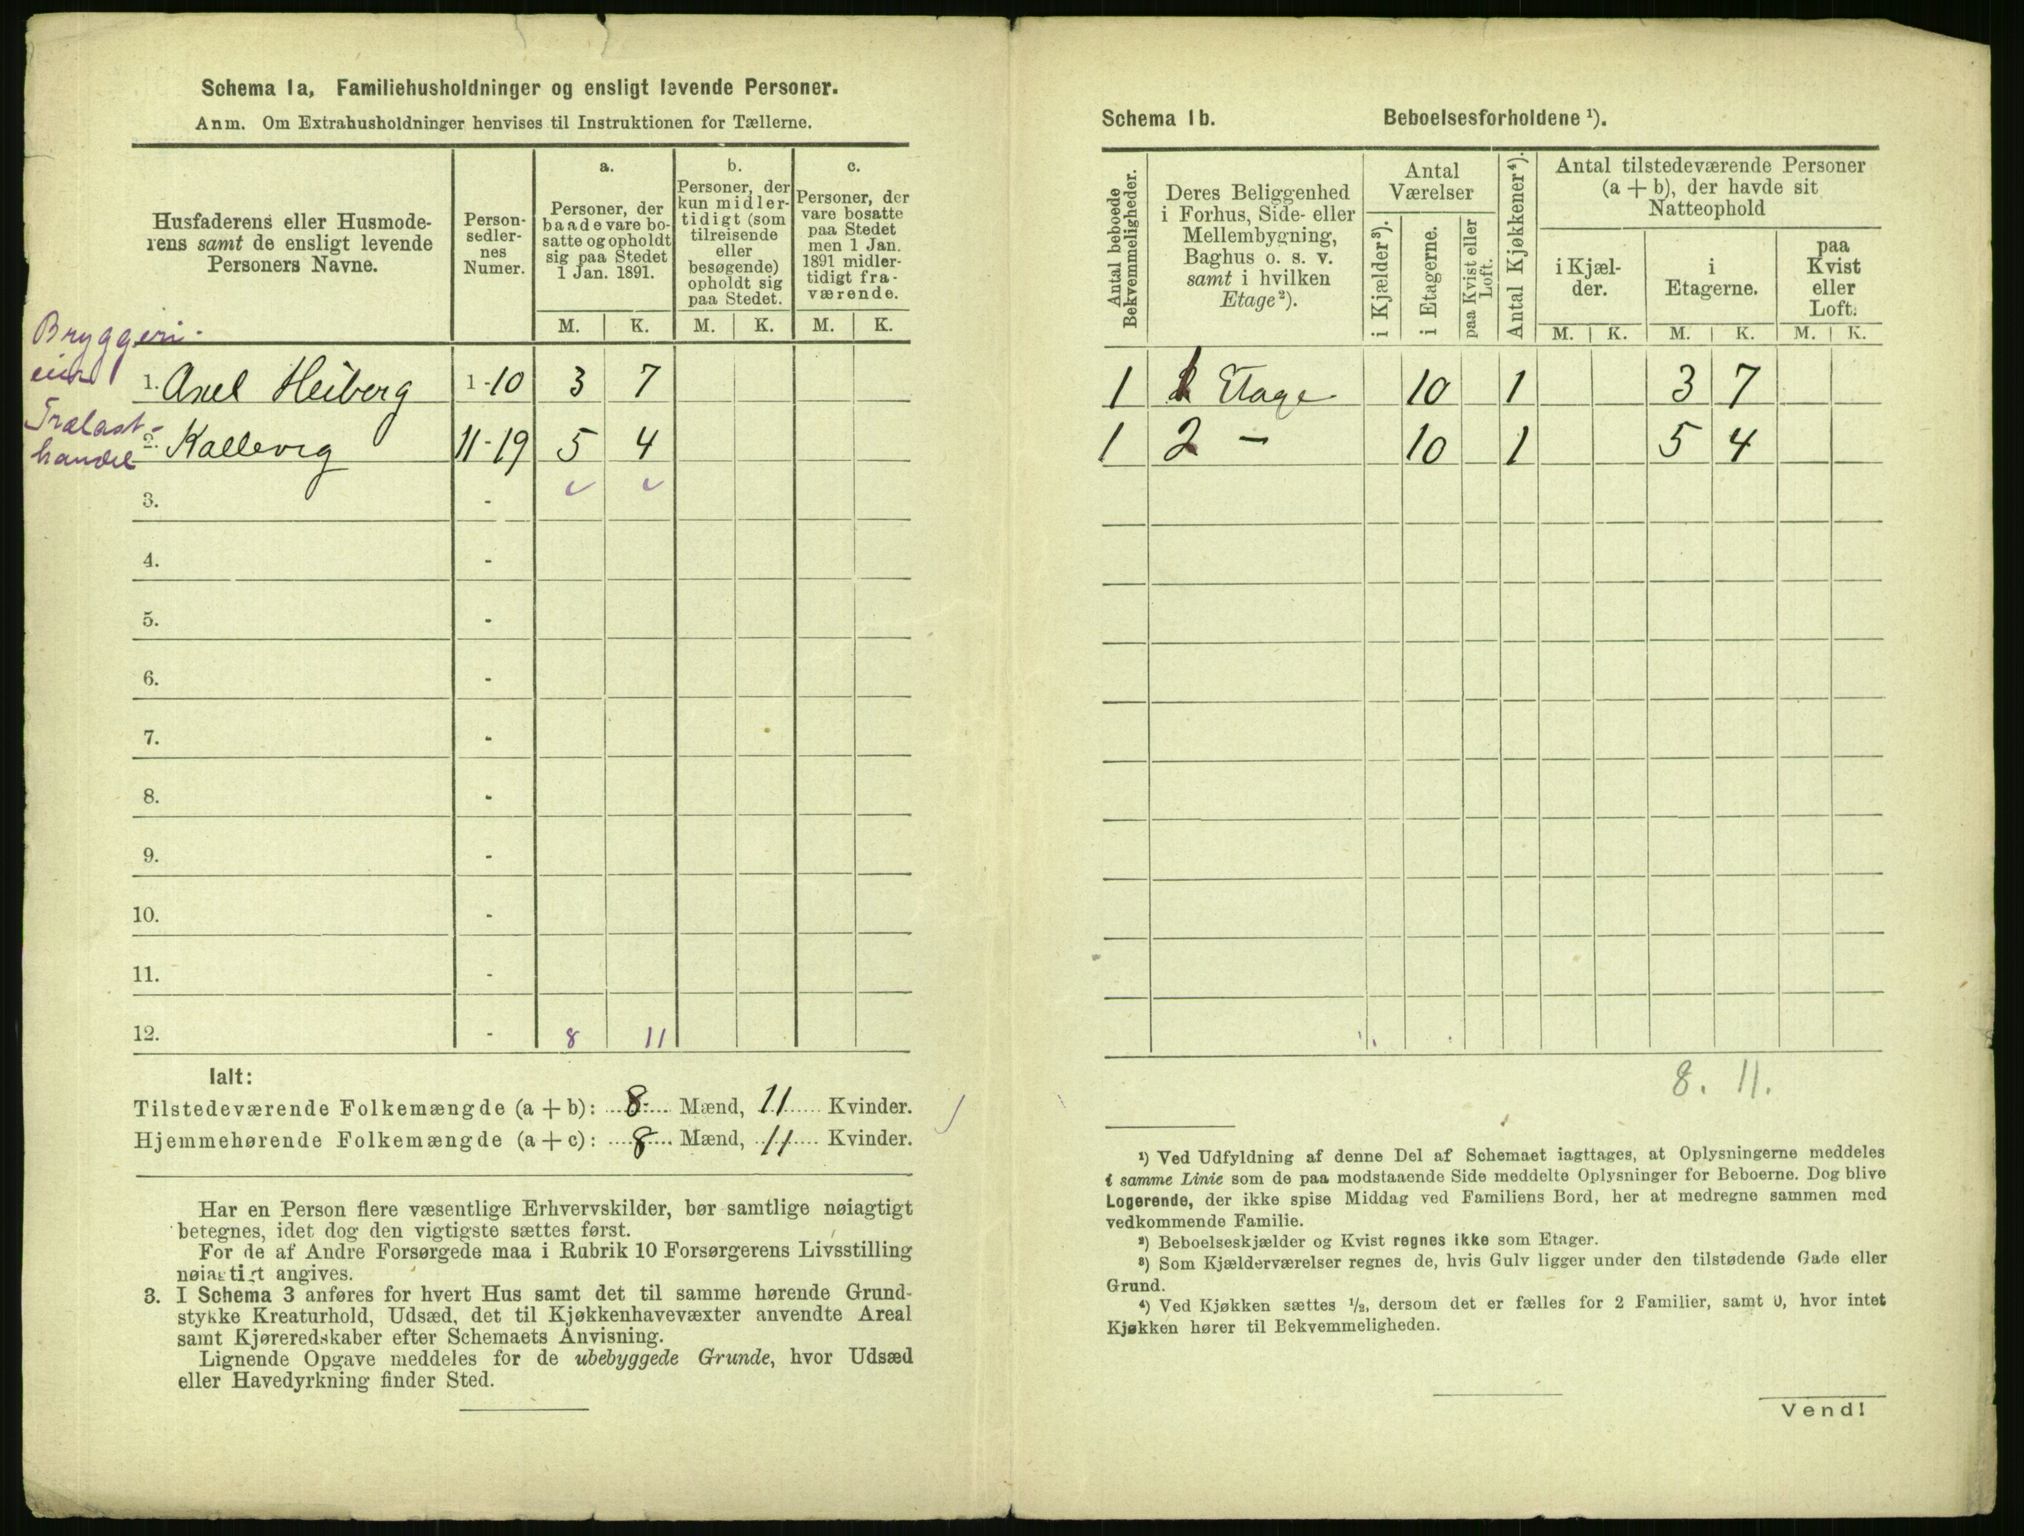 Schema 1a, Familiehusholdninger og ensligt levende Personer.
Anm. Om Extrahusholdninger henvises til Instruktionen for Tællerne.
Husfaderens eller Husmode-
rens samt de ensligt levende
Personers Navne.
Person-
sedler-
nes
Numer.
a.
Personer, der
baade vare bo-
satte og opholdt
sig paa Stedet
1 Jan. 1891.
b.
Personer, der
kun midler-
tidigt (som
tilreisende
eller
besøgende)
opholdt sig
paa Stedet.
c.
Personer, der
vare bosatte
paa Stedet
men 1 Jan.
1891 midler-
tidigt fra-
værende.
M. K. M. K. M. K.
Bryggeri-
eier
1. Axel Heiberg 1-10 3 7
Trælast-
handel
2. Kallevig 11-19 5 4
3. -
4. -
5. -
6. -
7. -
8. -
9. -
10. -
11. -
12. - 8 11
Ialt:
Tilstedeværende Folkemængde (a + b): 8 Mænd, 11 Kvinder.
Hjemmehørende Folkemængde (a + c): 8 Mænd, 11 Kvinder.
Har en Person flere væsentlige Erhvervskilder, bør samtlige nøiagtigt
betegnes, idet dog den vigtigste sættes først.
For de af Andre Forsørgede maa i Rubrik 10 Forsørgerens Livsstilling
nøiagtigt angives.
3. I Schema 3 anføres for hvert Hus samt det til samme hørende Grund-
stykke Kreaturhold, Udsæd, det til Kjøkkenhavevæxter anvendte Areal
samt Kjøreredskaber efter Schemaets Anvisning.
Lignende Opgave meddeles for de ubebyggede Grunde, hvor Udsæd
eller Havedyrkning finder Sted.
Schema 1b. Beboelsesforholdene ¹).
Antal beboede
Bekvemmeligheder.
Deres Beliggenhed
i Forhus, Side- eller
Mellembygning,
Baghus o. s. v.
samt i hvilken
Etage²).
Antal
Værelser
i Kjælder³).
i Etagerne.
paa Kvist eller
Loft.
Antal Kjøkkener⁴).
Antal tilstedeværende Personer
(a + b), der havde sit
Natteophold
i Kjæl-
der.
i
Etagerne.
paa
Kvist
eller
Loft.
M. K. M. K. M. K.
1 1 Etage 10 1 3 7
1 2 - 10 1 5 4
8. 11.
¹) Ved Udfyldning af denne Del af Schemaet iagttages, at Oplysningerne meddeles
i samme Linie som de paa modstaaende Side meddelte Oplysninger for Beboerne. Dog blive
Logerende, der ikke spise Middag ved Familiens Bord, her at medregne sammen med
vedkommende Familie.
²) Beboelseskjælder og Kvist regnes ikke som Etager.
³) Som Kjælderværelser regnes de, hvis Gulv ligger under den tilstødende Gade eller
Grund.
⁴) Ved Kjøkken sættes ½, dersom det er fælles for 2 Familier, samt 0, hvor intet
Kjøkken hører til Bekvemmeligheden.
Vend!